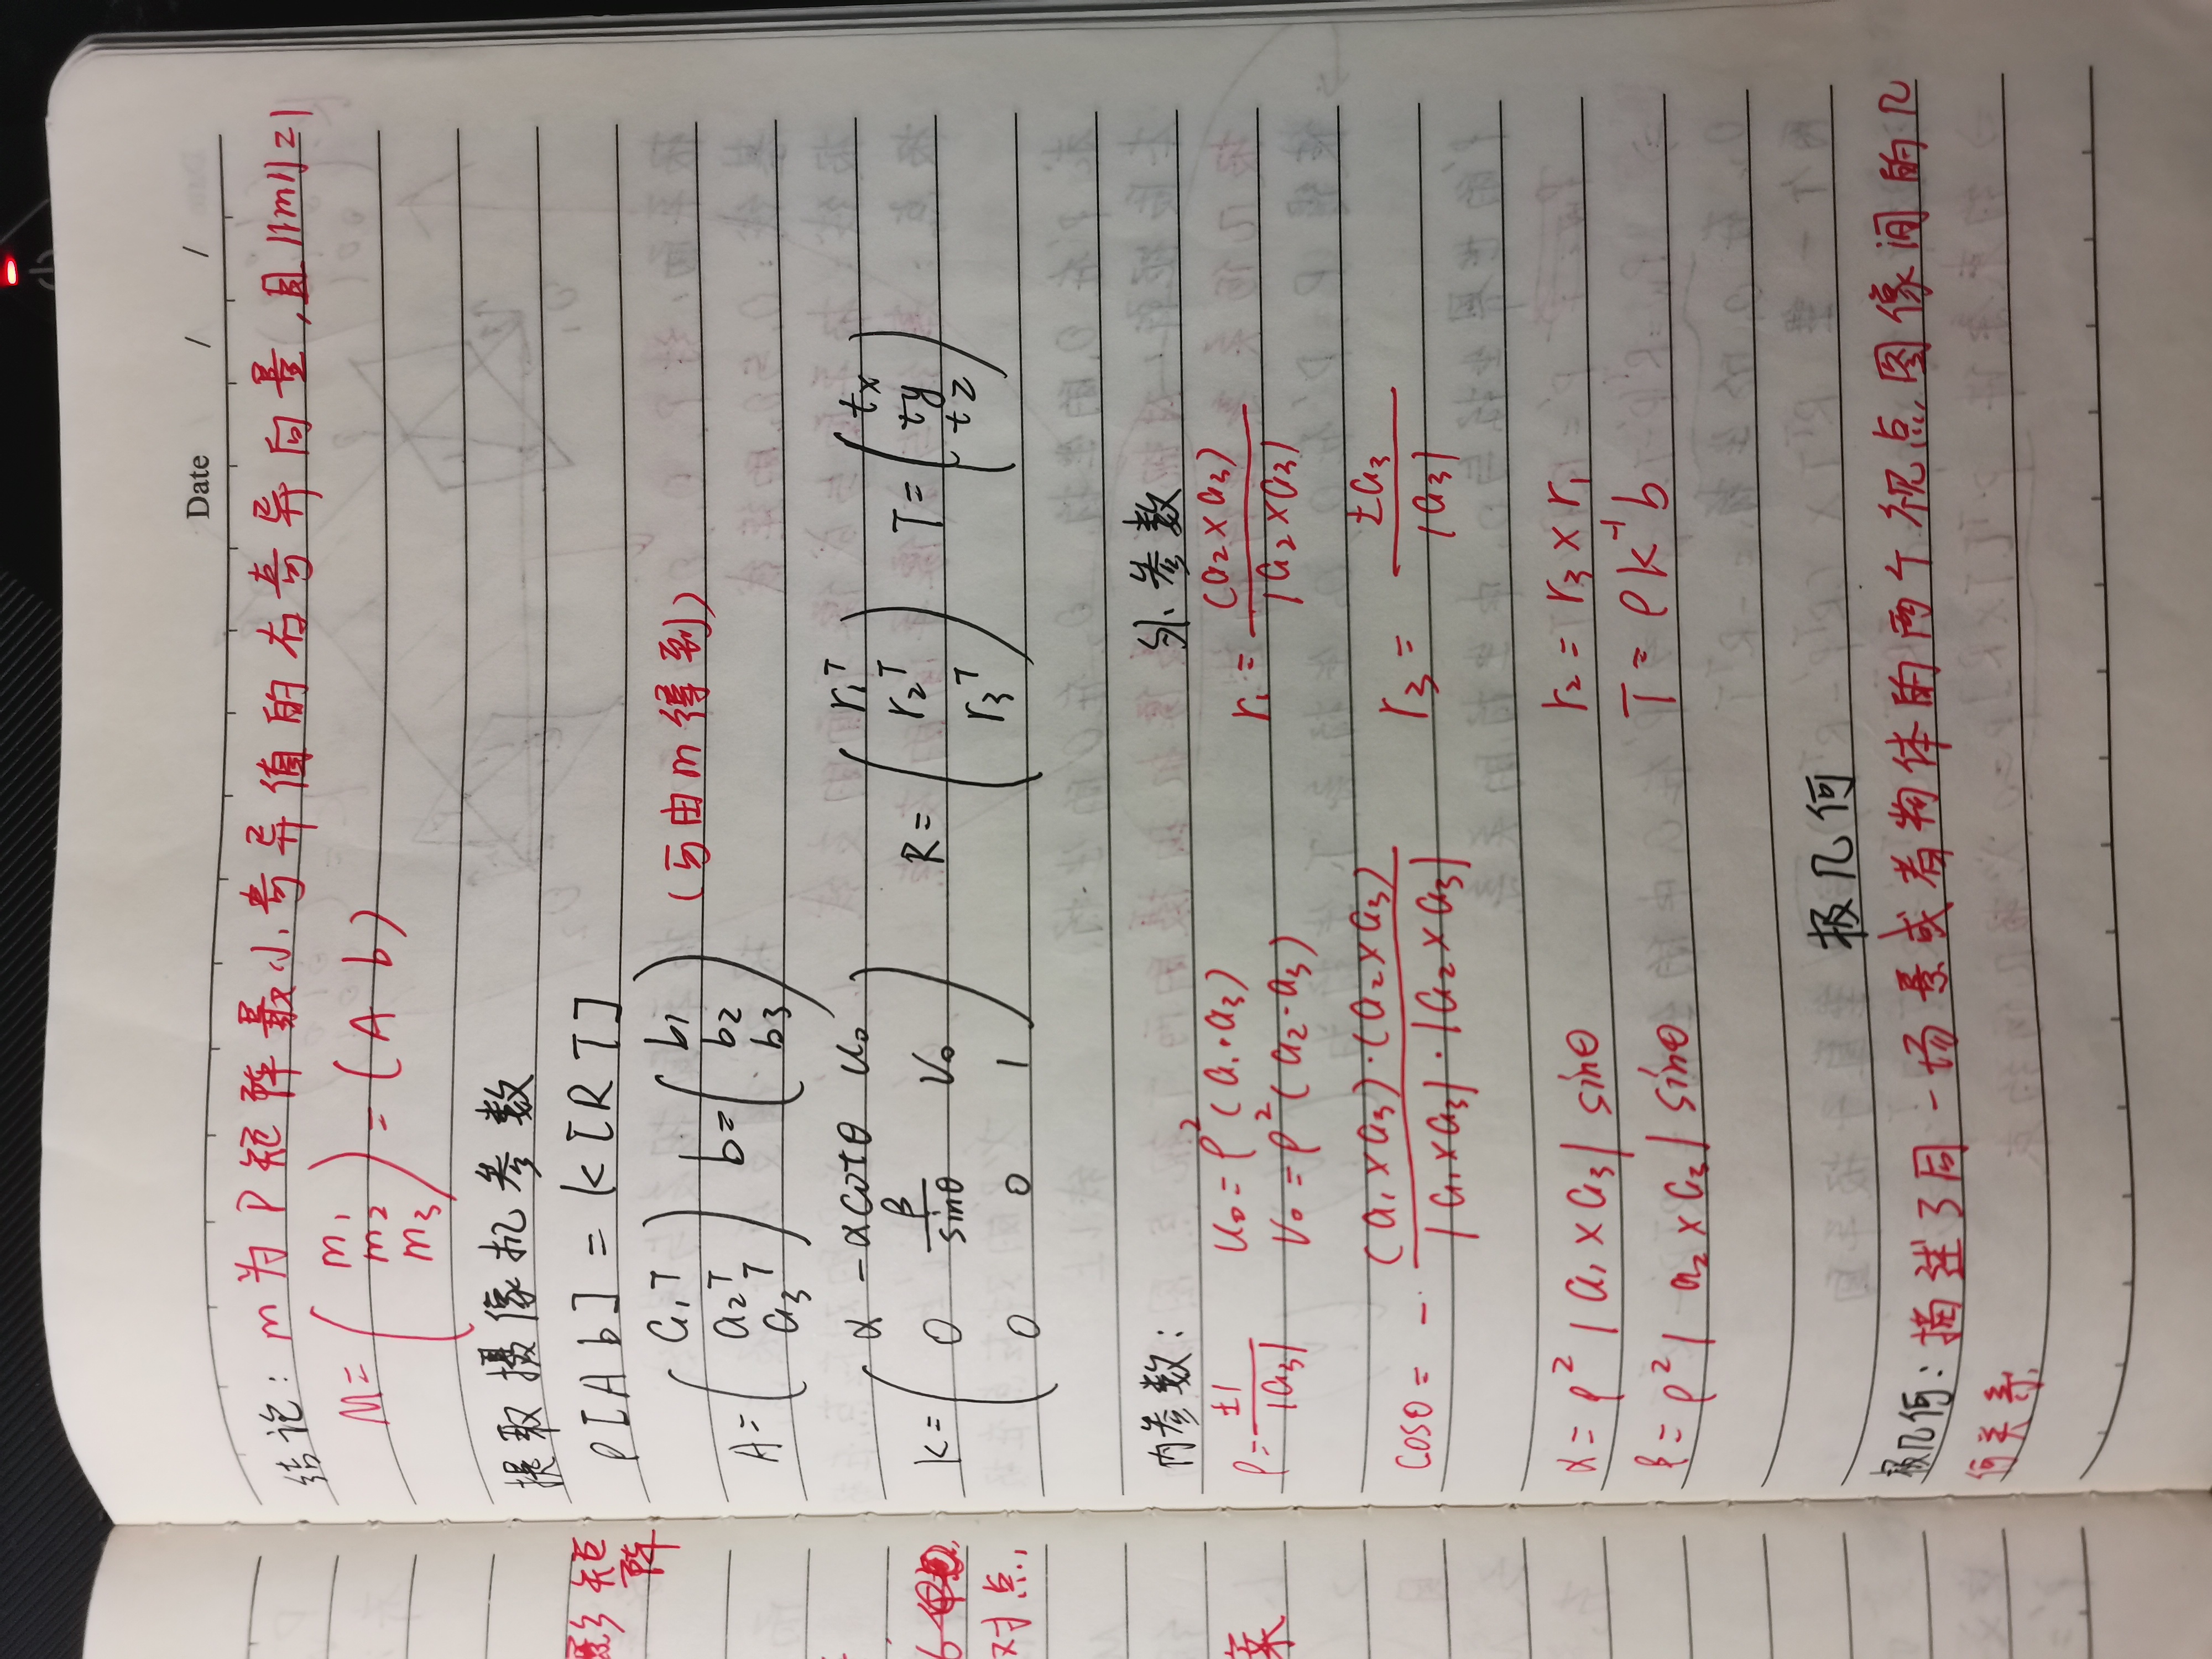 Date / /
结论: m为P矩阵最小奇异值的右奇异向量,且||m||=1
M= ( m1 m2 m3 ) = (A b)
提取摄像机参数
ρ[A b] = K[R T]
A= ( a1^T a2^T a3^T ) b= ( b1 b2 b3 ) (可由m得到)
K= ( α -αcotθ u0 0 β/sinθ v0 0 0 1 ) R= ( r1^T r2^T r3^T ) T= ( tx ty tz )
内参数: 外参数
ρ= ±1/|a3| u0=ρ²(a1·a3) r1= (a2×a3)/|a2×a3|
v0=ρ²(a2·a3)
cosθ= - (a1×a3)·(a2×a3)/|a1×a3|·|a2×a3| r3= ±a3/|a3|
α= ρ²|a1×a3|sinθ r2=r3×r1
β= ρ²|a2×a3|sinθ T=ρK^-1 b
极几何
极几何: 描述了同一场景或者物体的两个视点图像间的几
何关系.
矩
阵
对点.
来